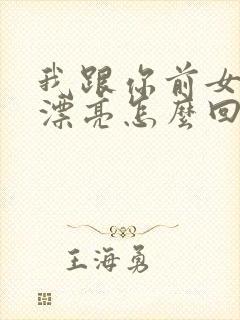 我跟你前女
漂亮怎麼回
王海勇